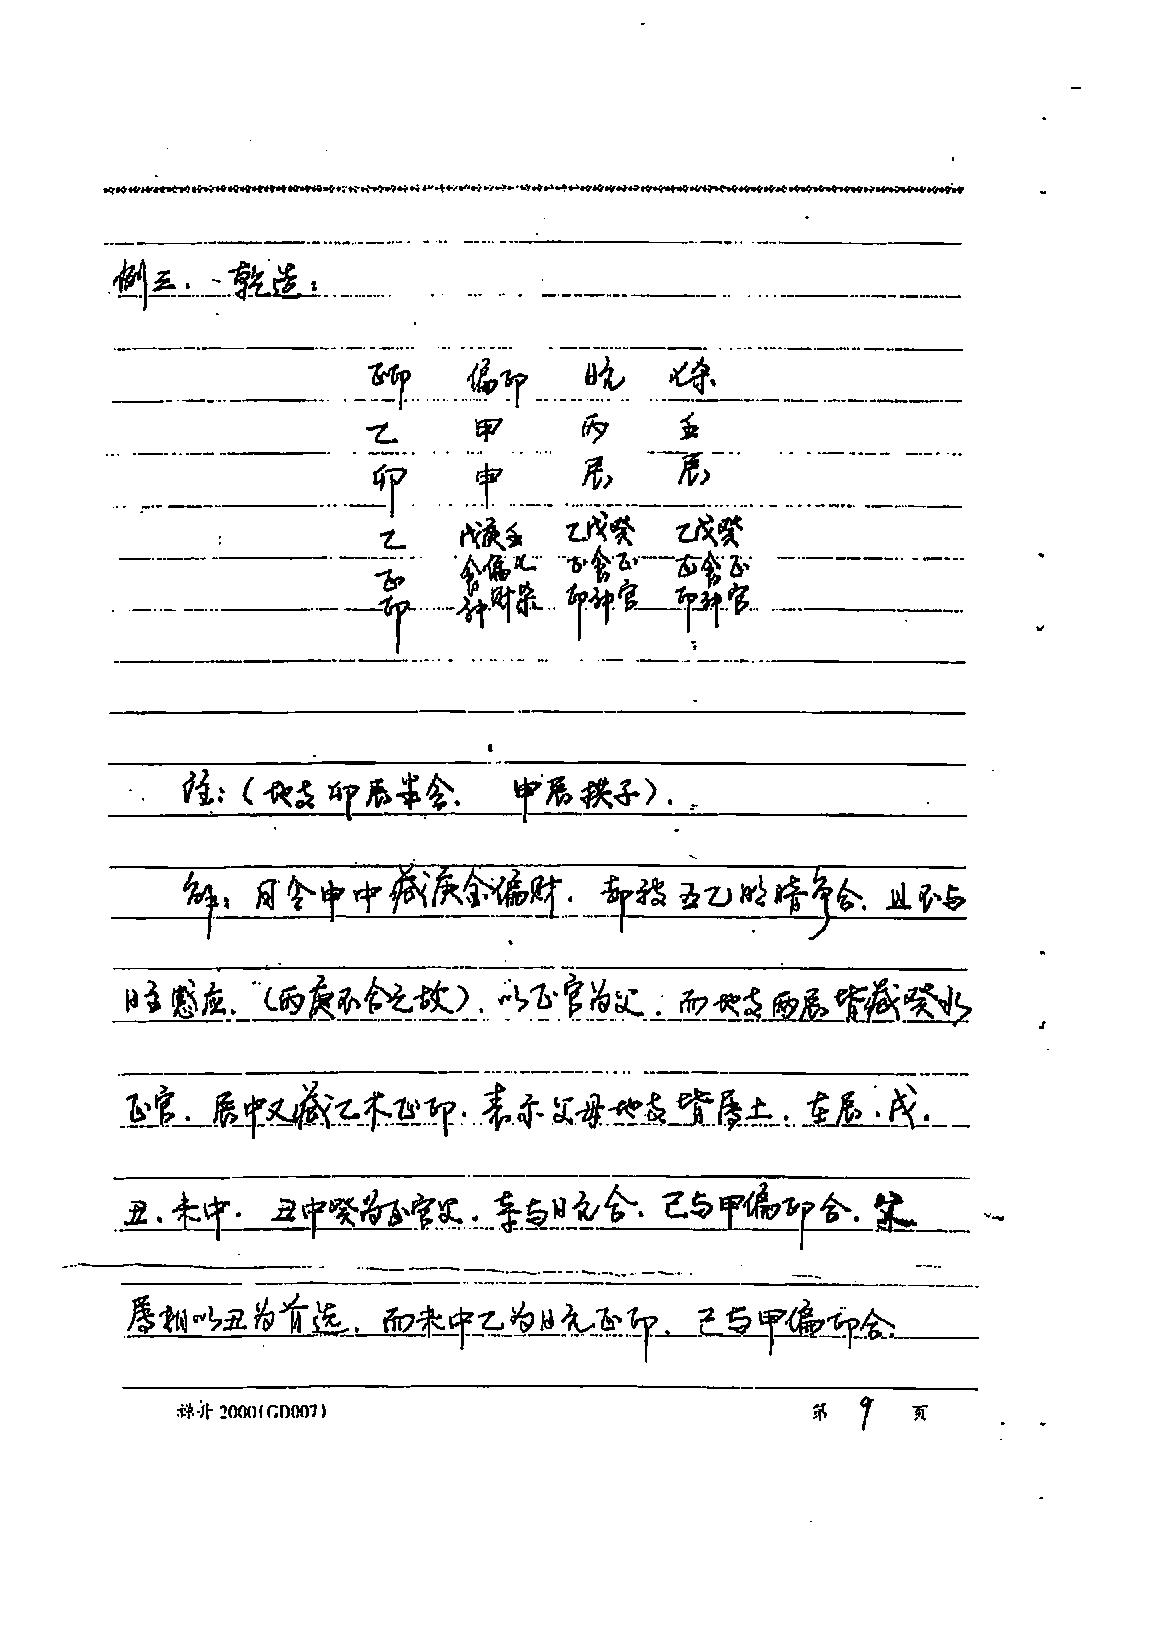 例三、乾造：
正印 偏印 日元 七杀
乙 甲 丙 壬
卯 申 辰 辰
乙 戊庚壬 乙戊癸 乙戊癸
正 食偏七 正食正 正食正
印 神财杀 印神官 印神官
注：（地支卯辰半会、 申辰拱子）。
解：月令申中藏庚金偏财，却被五乙明暗争合，且不与
日主感应，（丙庚不合之故），以正官为父，而地支两辰皆藏癸水
正官，辰中又藏乙木正印，表示父母地支皆属土，在辰、戌、
丑、未中。丑中癸为正官父，辛与日元合，己与甲偏印合，
属相以丑为首选，而未中乙为日元正印，己与甲偏印合，
2000(GD007) 第 9 页